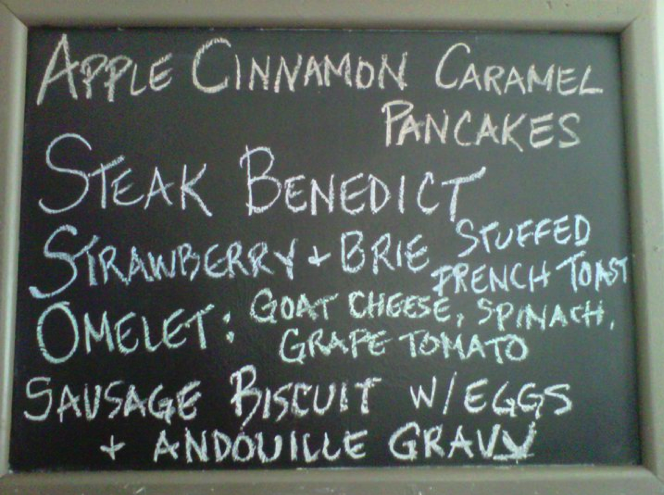 APPLE CINNAMON CARAMEL
PANCAKES
STEAK BENEDICT
STRAWBERRY + BRIE STUFFED
FRENCH TOAST
OMELET: GOAT CHEESE, SPINACH,
GRAPE TOMATO
SAUSAGE BISCUIT W/EGGS
+ ANDOUILLE GRAVY